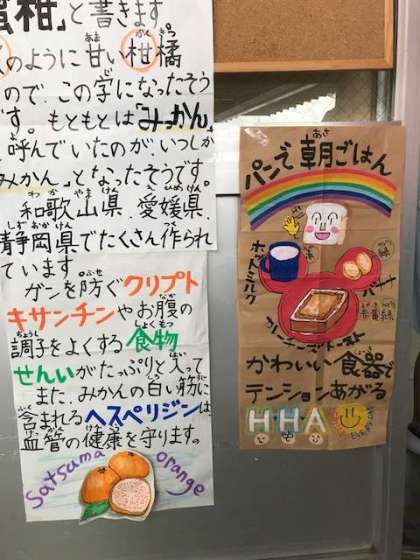 蜜柑」と書きます
のように甘い柑橘
ので、この字になったそう
です。もともとは「みっかん」
呼んでいたのが、いつしか
みかん」となったそうです。
和歌山県、愛媛県、
静岡県でたくさん作られ
ています。
ガンを防ぐクリプト
キサンチンやお腹の
調子をよくする食物
せんいがたっぷりと入って
また、みかんの白い筋に
含まれるヘスペリジンは
血管の健康を守ります。
Satsuma orange
パンで朝ごはん
ホットミルク
バナナ
クリーミーチーズトースト
かわいい食器で
テンションあがる
HHA